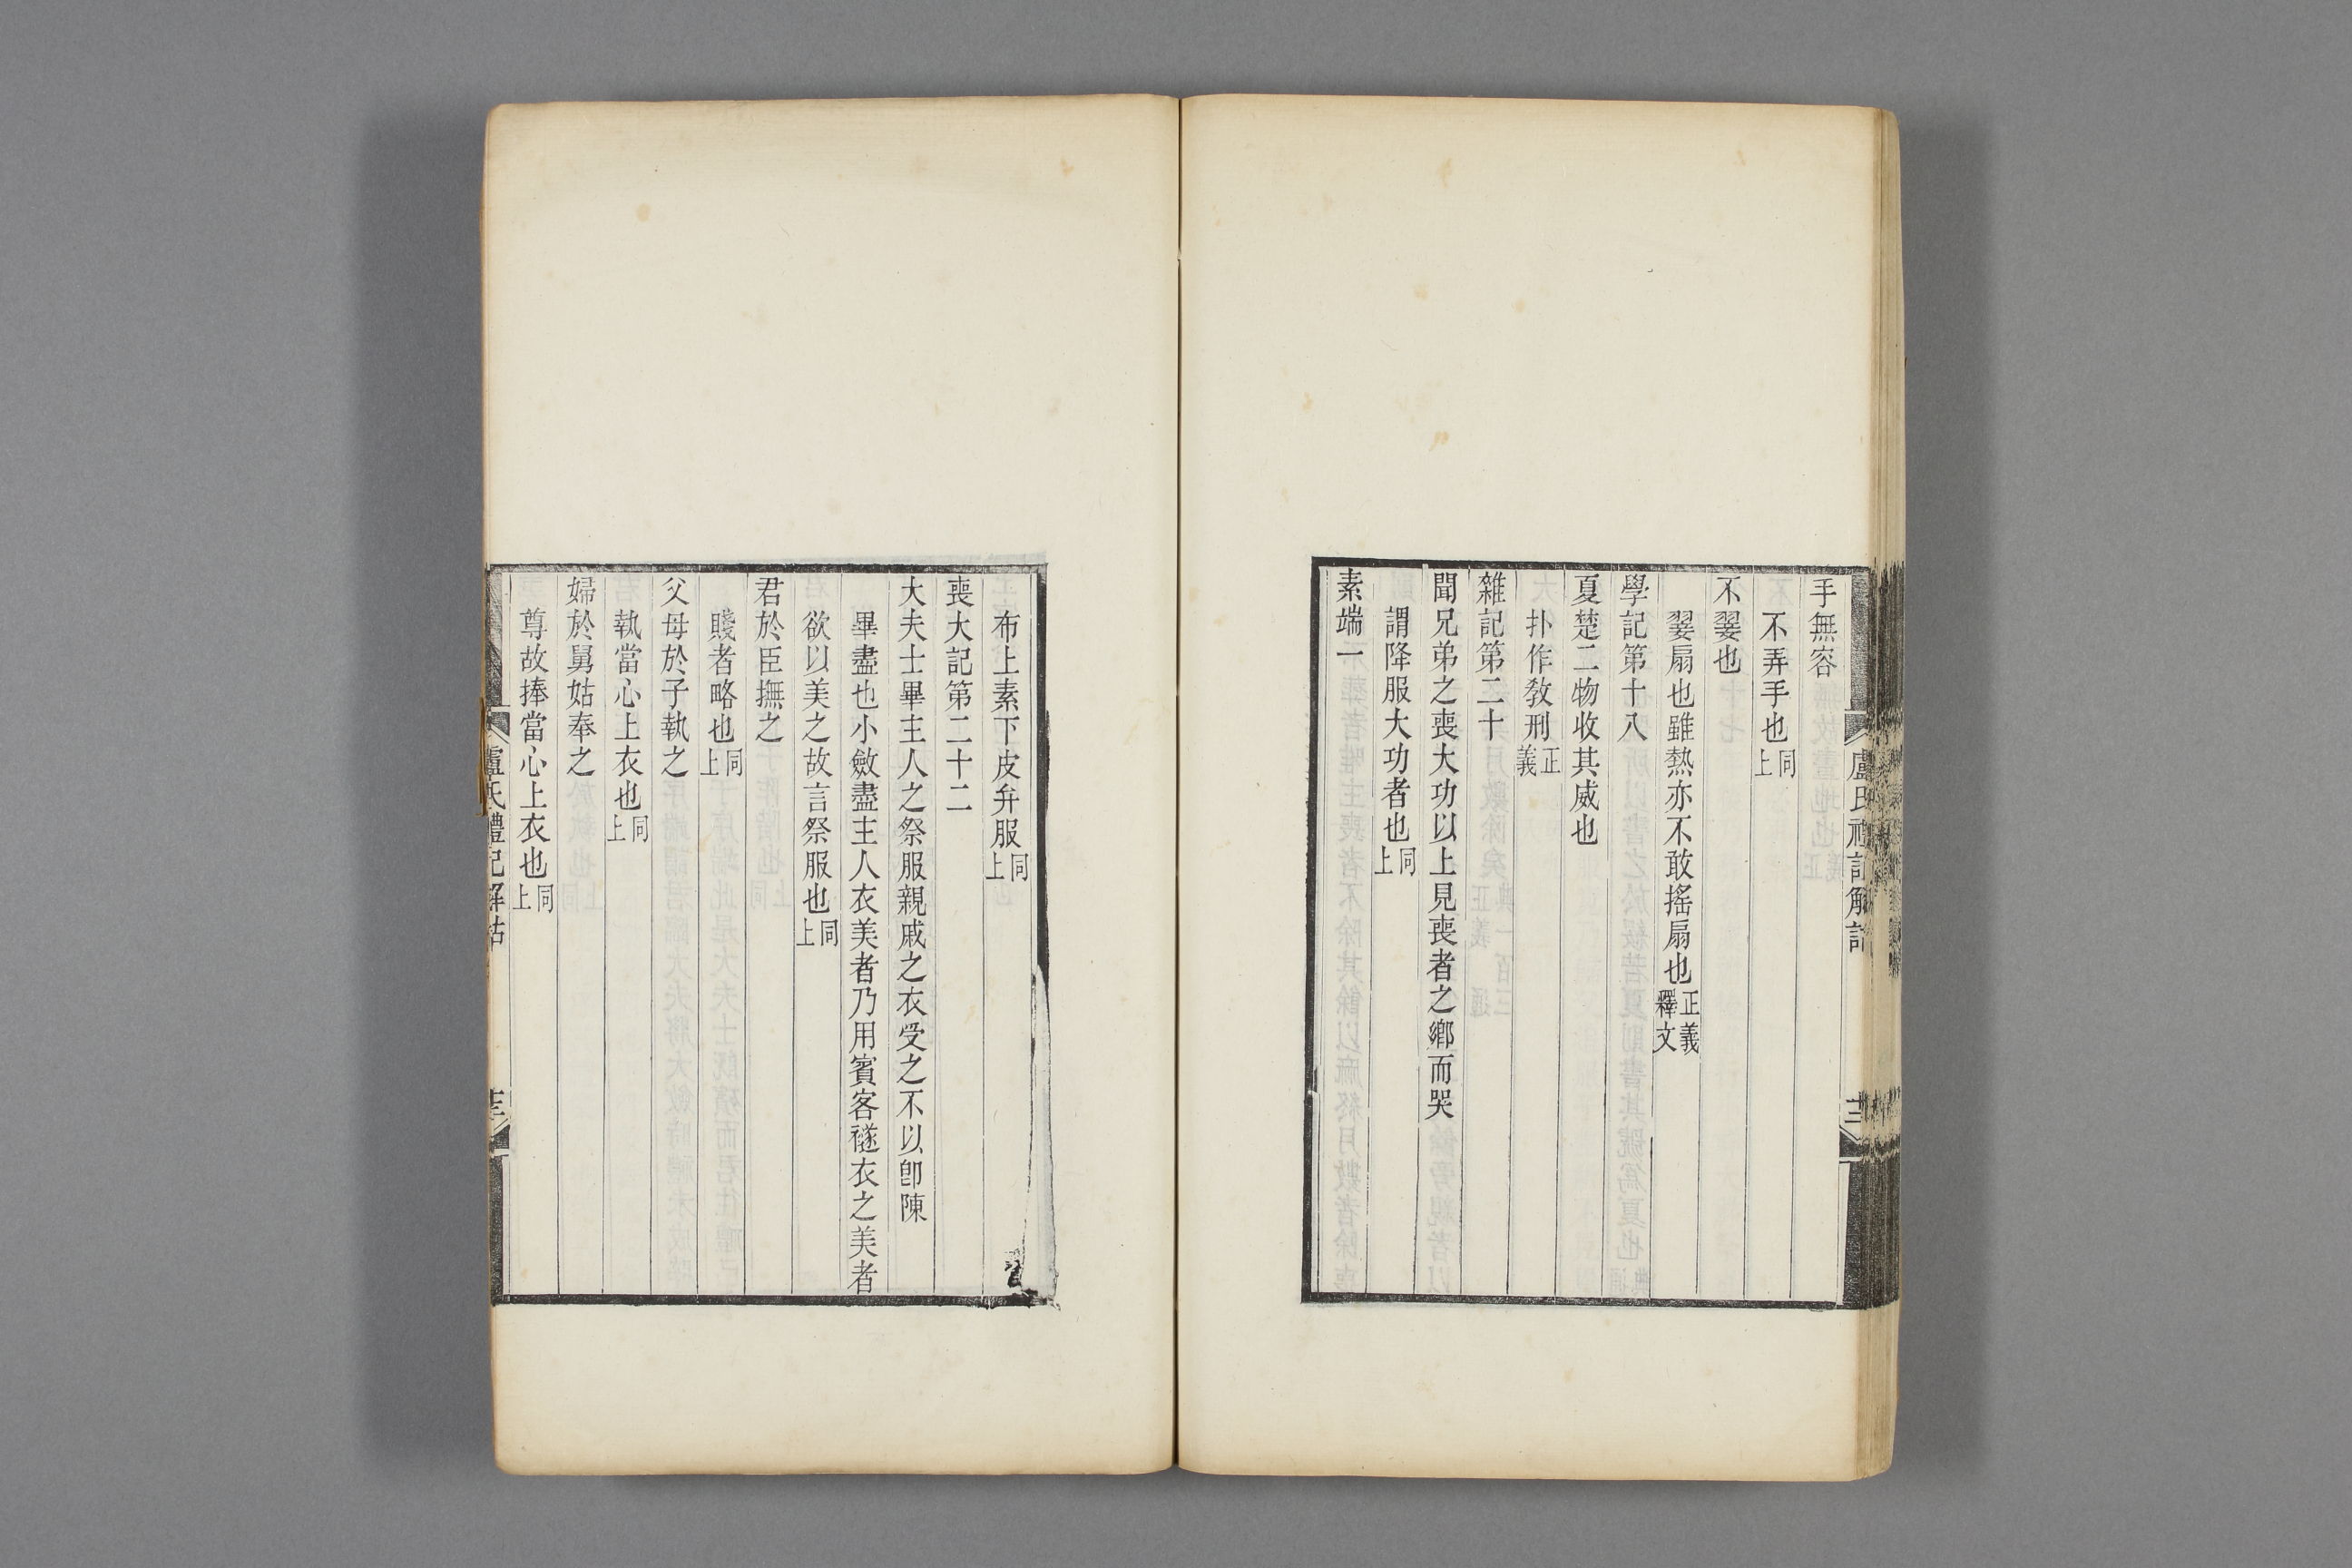 手無容
不弄手也同上
不翣也
翣扇也雖熱亦不敢搖扇也正義釋文
學記第十八
夏楚二物收其威也
扑作敎刑正義
雜記第二十
聞兄弟之喪大功以上見喪者之鄉而哭
謂降服大功者也同上
素端一
布上素下皮弁服同上
喪大記第二十二
大夫士畢主人之祭服親戚之衣受之不以卽陳
畢盡也小斂盡主人衣美者乃用賓客襚衣之美者
欲以美之故言祭服也同上
君於臣撫之
賤者略也同上
父母於子執之
執當心上衣也同上
婦於舅姑奉之
尊故捧當心上衣也同上
盧氏禮記解詁